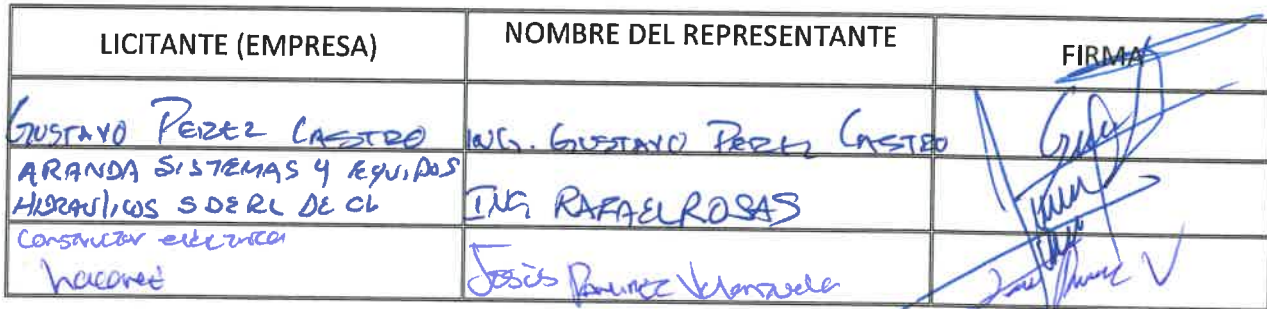 LICITANTE (EMPRESA) NOMBRE DEL REPRESENTANTE FIRMA
GUSTAVO PEREZ CASTRO ING. GUSTAVO PEREZ CASTRO
ARANDA SISTEMAS Y EQUIPOS
HIDRAULICOS S DE RL DE CV ING RAFAEL ROSAS
Jesús Ramirez Valenzuela